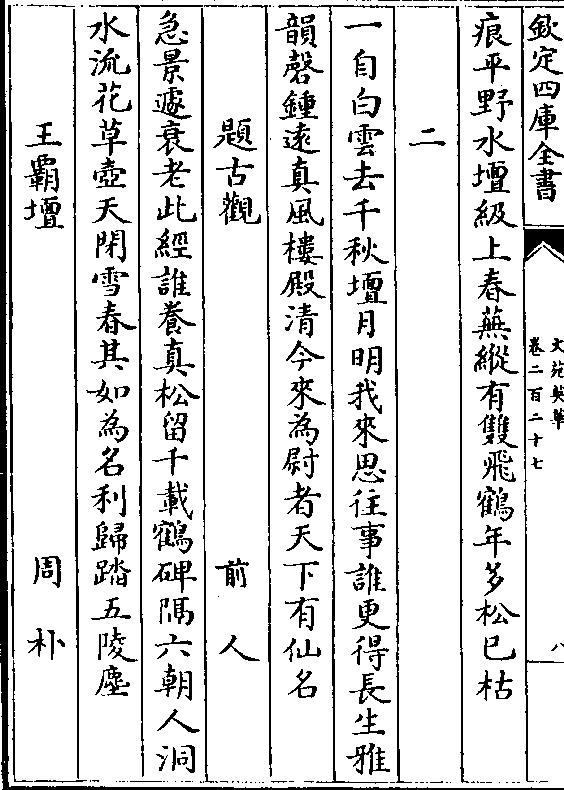 欽定四庫全書
文苑英華
卷二百二十七
八
痕平野水壇級上春蕪縱有雙飛鶴年多松已枯
二
一自白雲去千秋壇月明我來思往事誰更得長生雅
韻磬鍾遠真風樓殿清今來為尉者天下有仙名
題古觀 前人
急景遽衰老此經誰養真松留千載鶴碑隔六朝人洞
水流花草壺天閉雪春其如為名利歸踏五陵塵
王霸壇 周朴